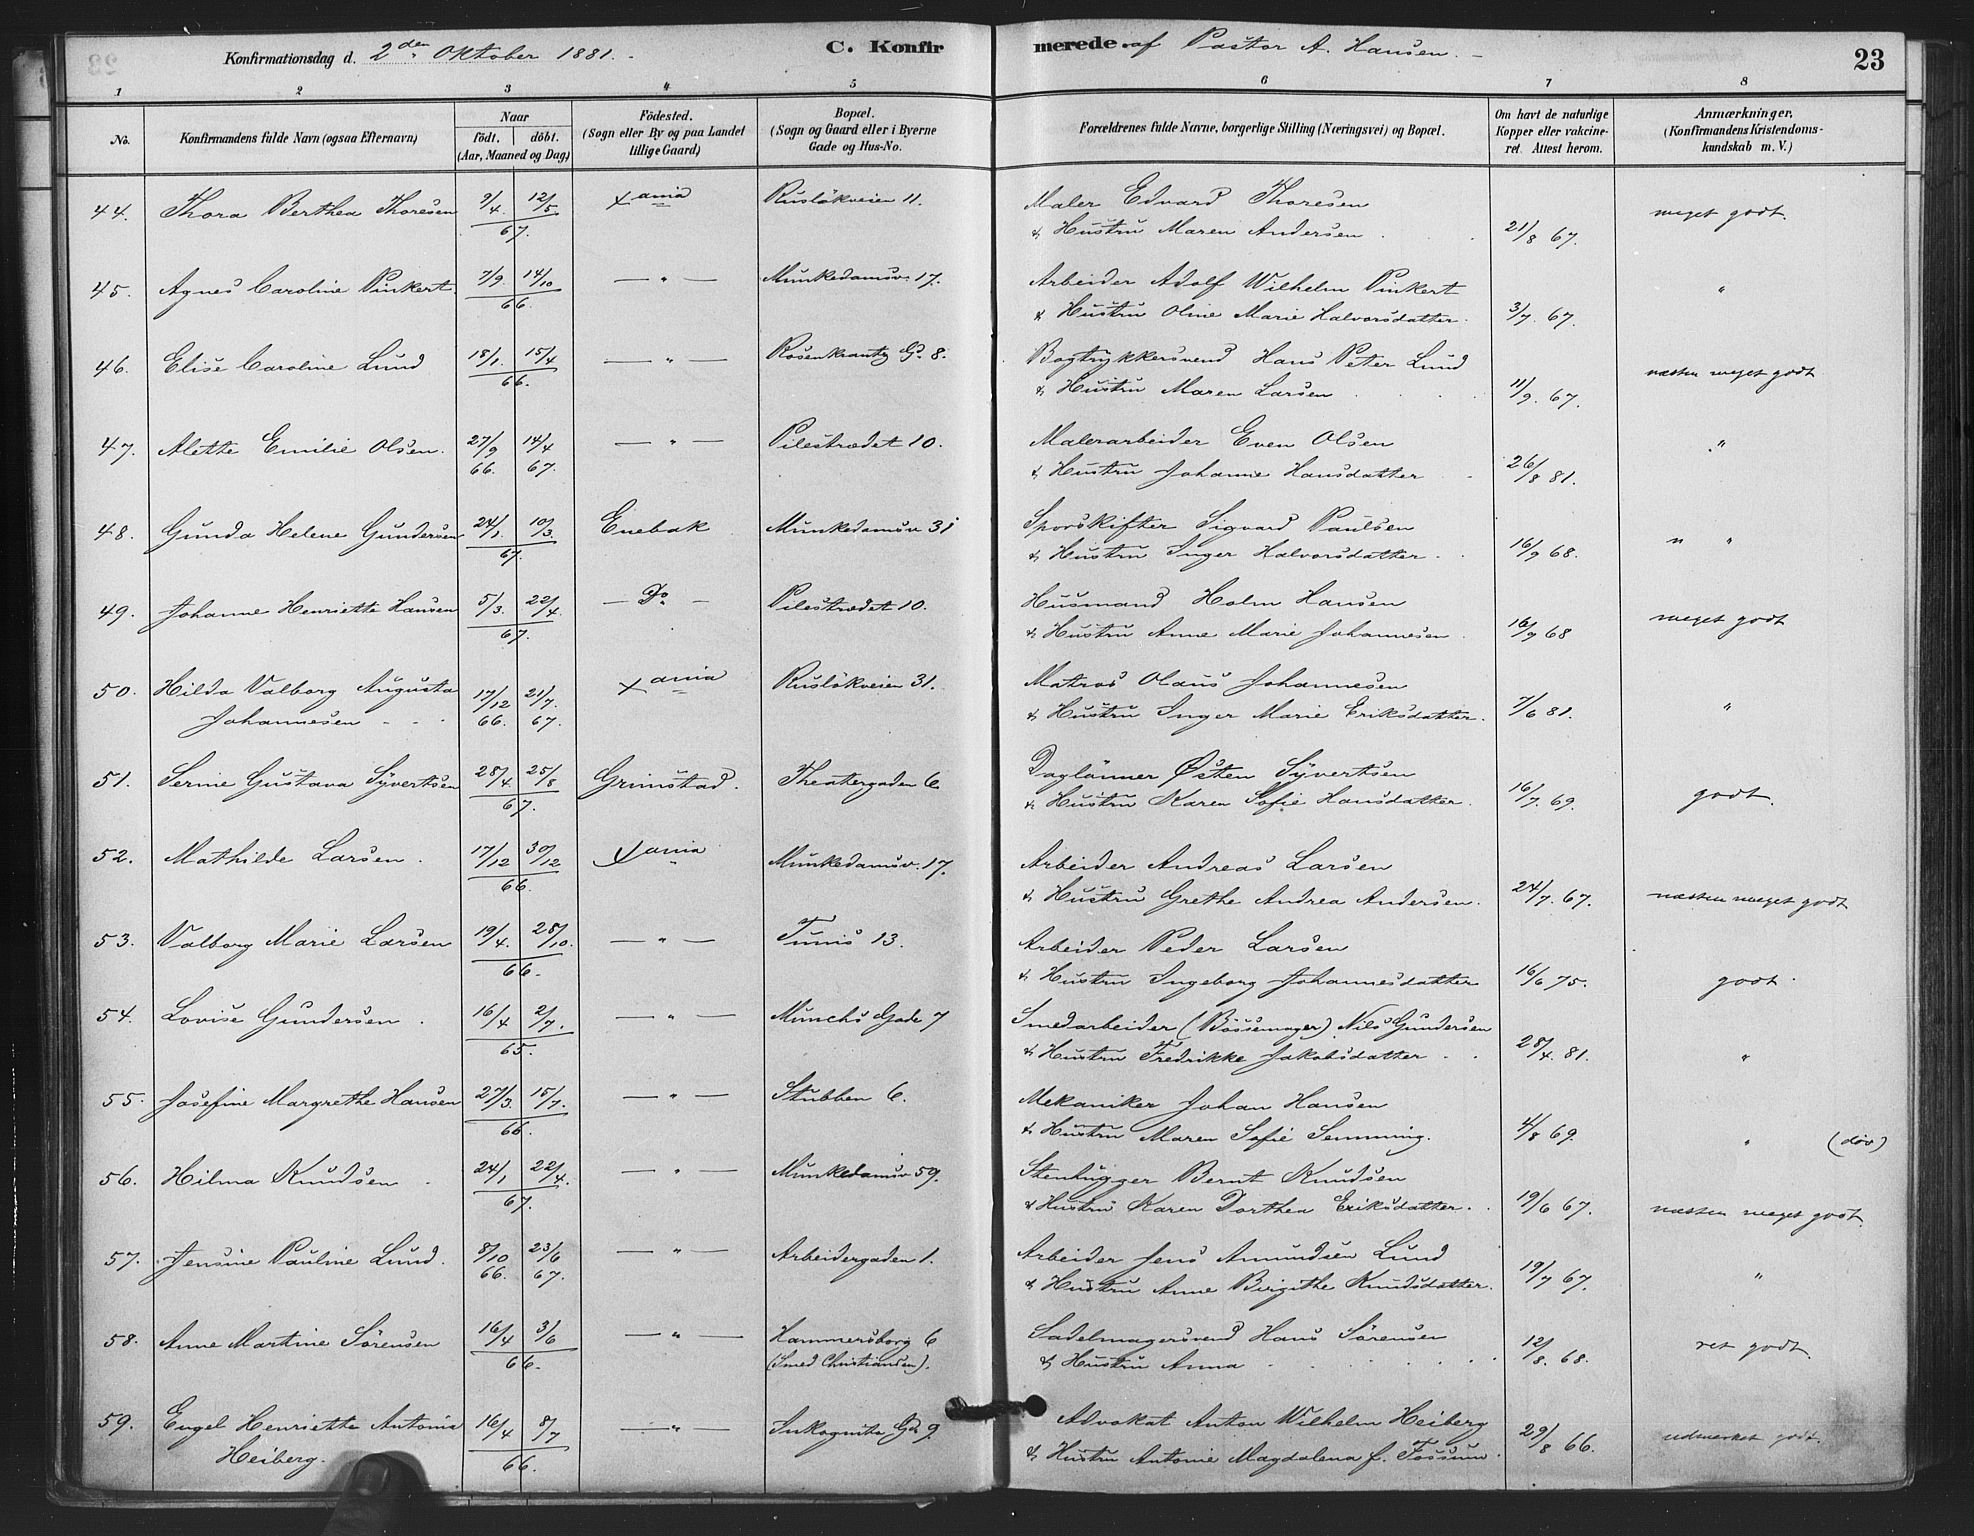 Konfirmationsdag d. 2den Oktober 1881. C. Konfirmerede af Pastor A. Hansen. 23
1 2 3 4 5 6 7 8
No. Konfirmandens fulde Navn (ogsaa Efternavn) Naar födt. döbt. (Aar, Maaned og Dag) Födested. (Sogn eller By og paa Landet tillige Gaard) Bopæl. (Sogn og Gaard eller i Byerne Gade og Hus-No. Forældrenes fulde Navne, borgerlige Stilling (Næringsvei) og Bopæl. Om havt de naturlige Kopper eller vakcineret. Attest herom. Anmærkninger, (Konfirmandens Kristendomskundskab m. V.)
44. Thora Berthea Thoresen 9/4 12/5 67. Xania Rusløkveien 11. Maler Edvard Thoresen
& Hustru Maren Andersen 21/8 67. meget godt.
45. Agnes Caroline Pinkert 7/9 14/10 66. — " — Munkedamsv. 17. Arbeider Adolf Wilhelm Pinkert
& Hustru Oline Marie Halvorsdatter. 3/7. 67. "
46. Elise Caroline Lund 18/1. 15/4 66. — " — Rosenkrantz G. 8. Bogtrykkersvend Hans Peter Lund
& Hustru Maren Larsen 11/9. 67. næsten meget godt
47. Alette Emilie Olsen. 27/9 66. 14/4 67. — " — Pilestrædet 10. Malerarbeider Even Olsen
& Hustru Johanne Hansdatter 26/8 81. "
48. Gunda Helene Gundersen 24/1. 10/3. 67. Enebak Munkedamsv 31 Sporskifter Sigvard Paulsen
& Hustru Inger Halvorsdatter. 16/9 68. " "
49. Johanne Henriette Hansen 5/3. 22/4 67. — Do — Pilestrædet 10. Husmand Holm Hansen
& Hustru Anne Marie Johannesen 16/9 68 meget godt
50. Hilda Valborg Augusta 17/12 66. 21/7. 67. Xania Rusløkveien 31. Matros Olaus Johannesen
Johannesen & Hustru Inger Marie Eriksdatter. 7/6 81. "
51. Serine Gustava Syvertsen 28/4 25/8 67. Grimstad. Theatergaden 6. Daglönner Østen Syvertsen
& Hustru Karen Sofie Hansdatter. 16/7. 69. godt.
52. Mathilde Larsen. 17/12 30/12 66. Xania Munkedamsv. 17. Arbeider Andreas Larsen
& Hustru Grethe Andrea Andersen. 24/7. 67. næsten meget godt
53. Valborg Marie Larsen 19/4. 28/10. 66. — " — Tunis 13. Arbeider Peder Larsen
& Hustru Ingeborg Johannesdatter 16/6 75. godt.
54. Lovise Gundersen. 16/4 2/7. 65. — " — Munchs Gade 7 Smedarbeider (Bössemager) Nils Gundersen
& Hustru Fredrikke Jakobsdatter 28/4. 81. "
55. Josefine Margrethe Hansen 27/3. 15/7. 66. — " — Stubben 6. Mekaniker Johan Hansen
& Hustru Maren Sofie Semming. 4/8 69. " (døv)
56. Hilma Knudsen 24/1 22/4. 67. — " — Munkedamsv 59. Stenhugger Bernt Knudsen
& Hustru Karen Dorthea Eriksdatter. 19/6 67. næsten meget godt
57. Jensine Pauline Lund. 8/10 66. 23/6 67. — " — Arbeidergaden 1. Arbeider Jens Amundsen Lund
& Hustru Anne Birgithe Knudsdatter. 19/7 67. "
58. Anne Martine Sörensen 16/4 3/6 66. — " — Hammersborg 6 Sadelmagersvend Hans Sörensen
(Smed Christiansen). & Hustru Anna 12/8. 68. ret godt.
59. Engel Henriette Antonie 16/4 8/7 66. — " — Inkognito Gd 9. Advokat Anton Wilhelm Heiberg
Heiberg. & Hustru Antonie Magdalena f. Fossum. 29/8 66. udmærket godt.